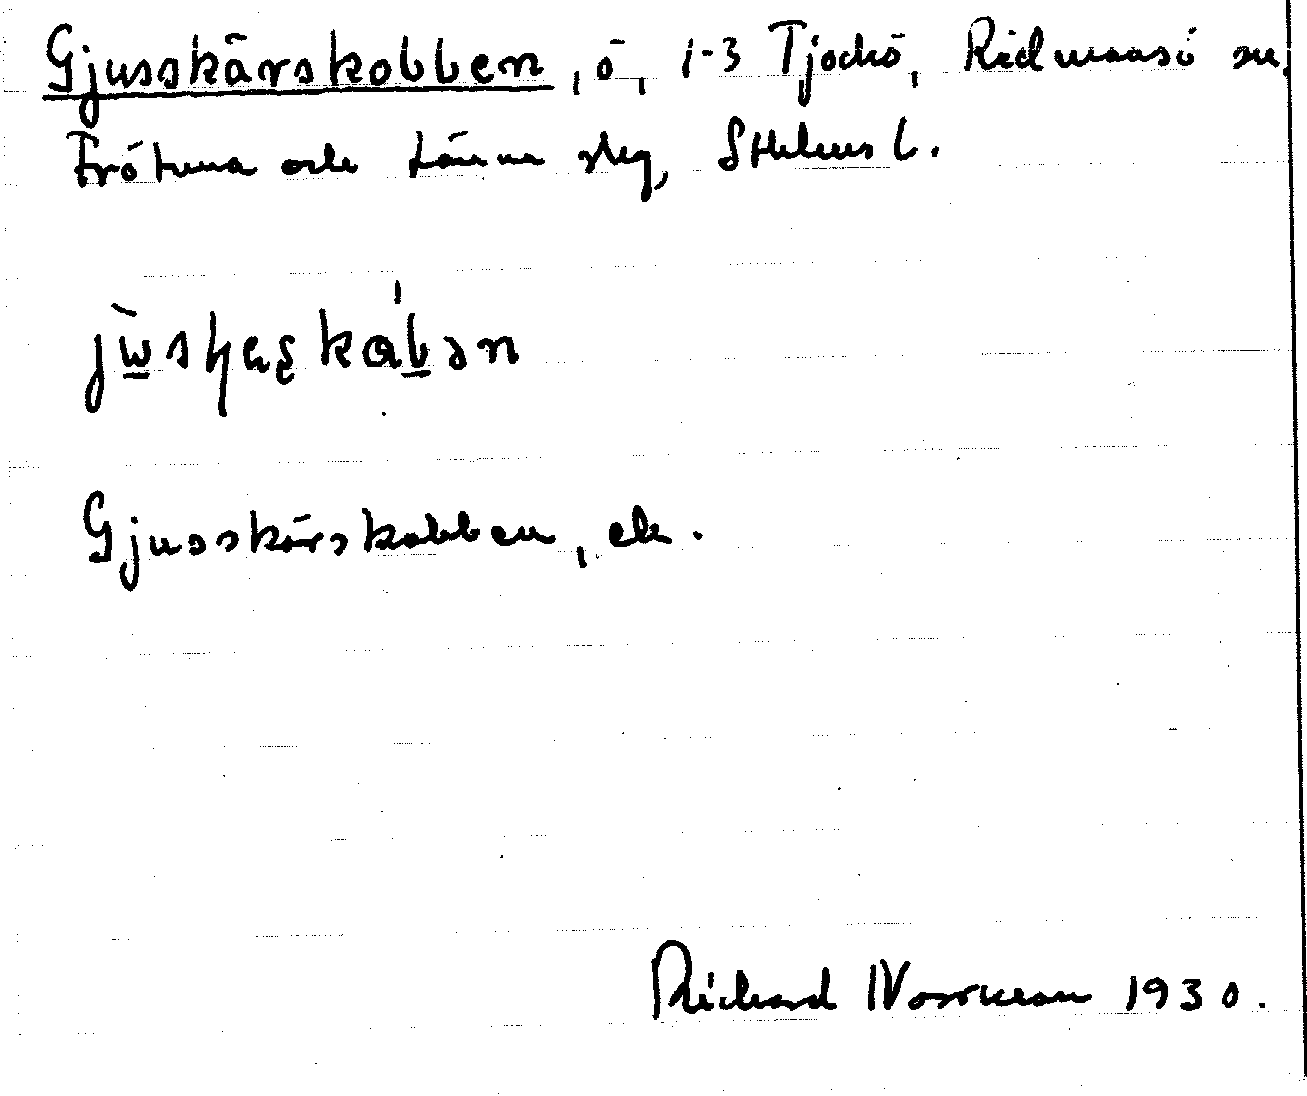 Gjusskärskobben, ö, 1-3 Tjockö, Rådmansö sn,
Frötuna och Länna slg, Sthlms l.
jùsʜɑʂkábən
Gjusskärskobben, ek.
Richard Norrman 1930.